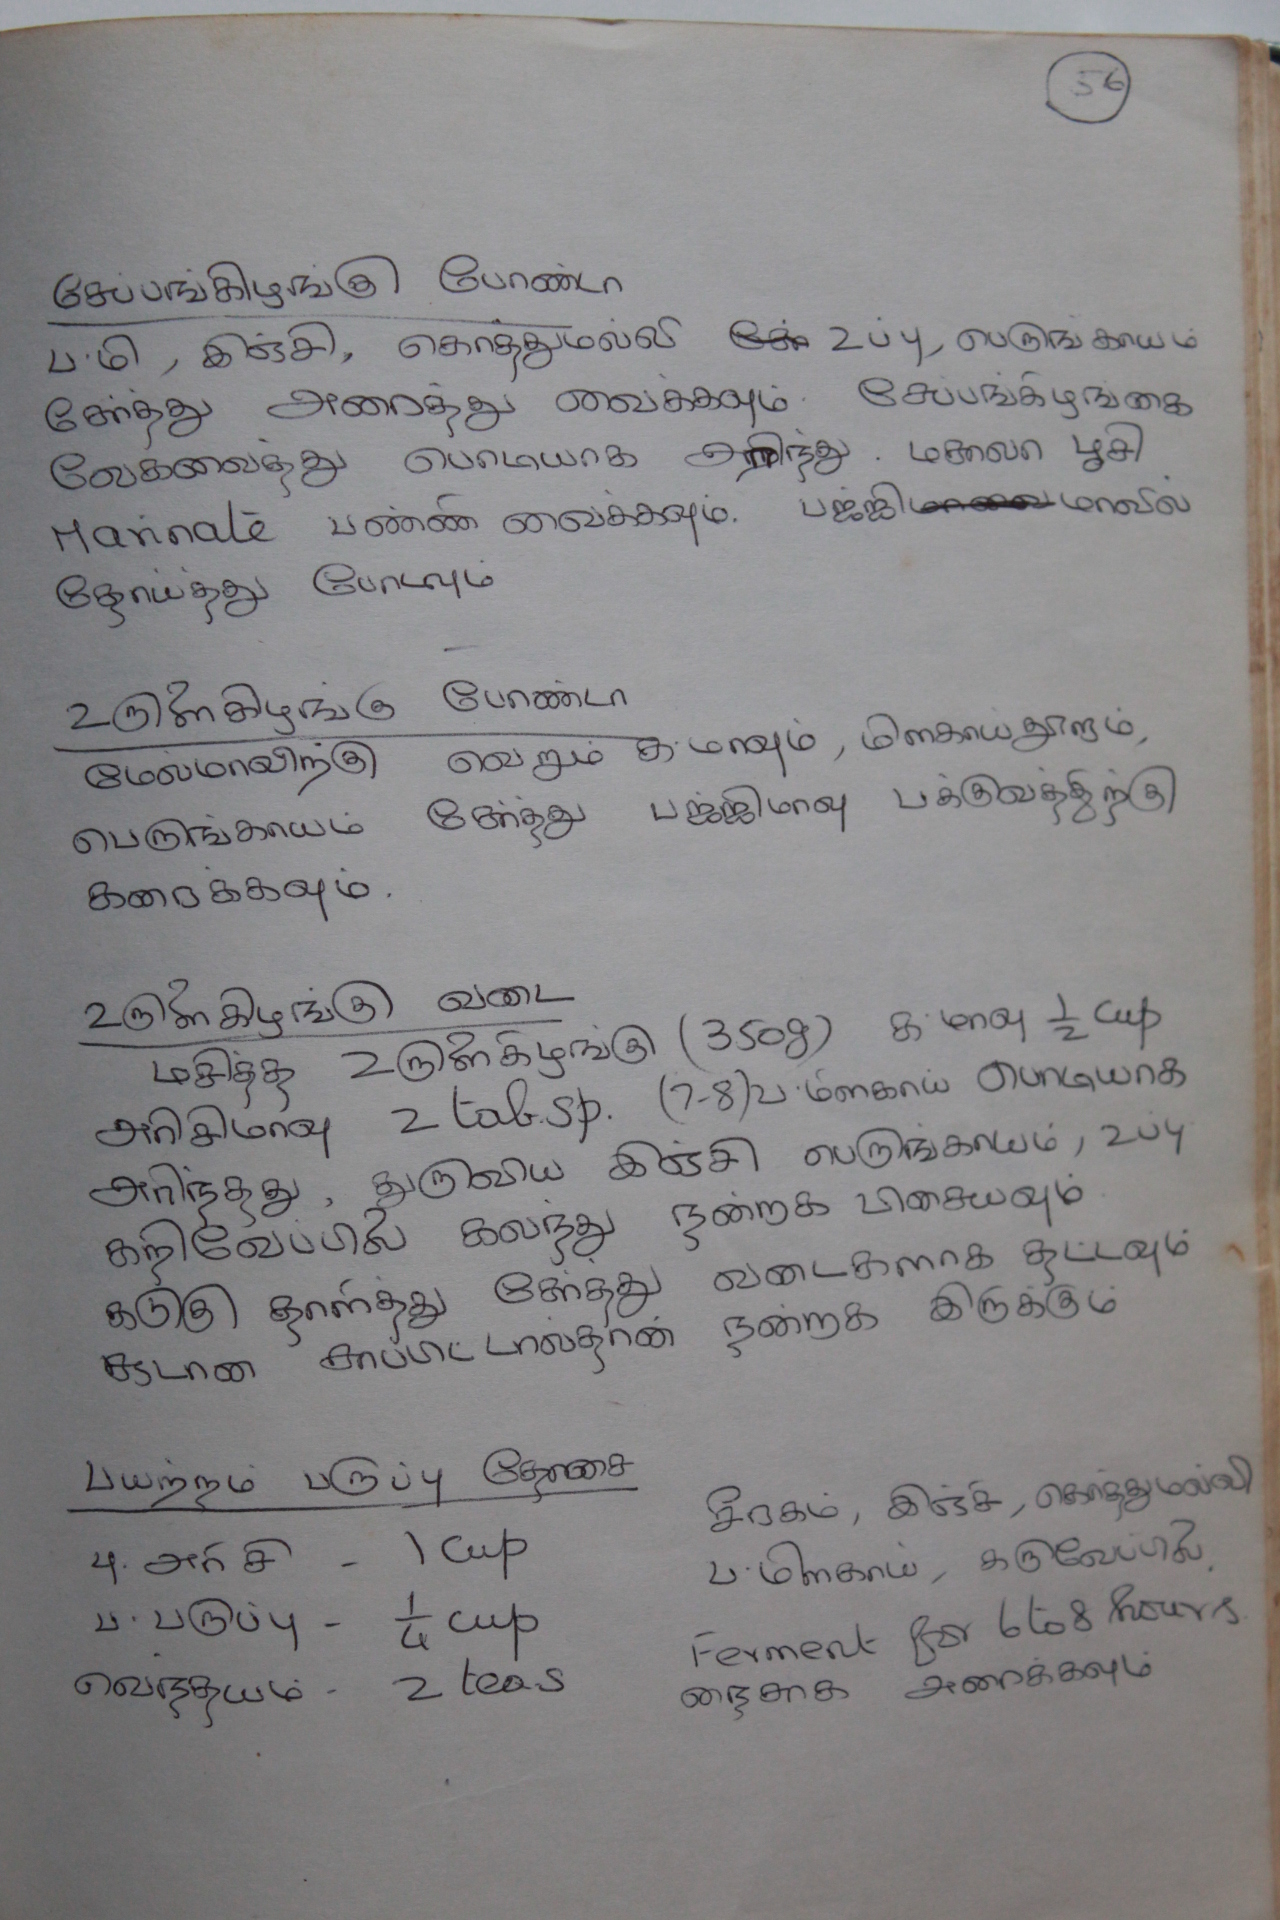 56
சேப்பங்கிழங்கு போண்டா
ப.மி, இஞ்சி, கொத்துமல்லி உப்பு, பெருங்காயம்
சேர்த்து அரைத்து வைக்கவும். சேப்பங்கிழங்கை
வேகவைத்து பொடியாக அரிந்து. மசாலா பூசி
Marinate பண்ணி வைக்கவும். பஜ்ஜிமாவில்
தோய்த்து போடவும்
உருளைகிழங்கு போண்டா
மேல்மாவிற்கு வெறும் க.மாவும், மிளகாய்தூளும்,
பெருங்காயம் சேர்த்து பஜ்ஜிமாவு பக்குவத்திற்கு
கரைக்கவும்.
உருளைகிழங்கு வடை
மசித்த உருளைகிழங்கு (350g) க.மாவு ½ cup
அரிசிமாவு 2 tab.sp. (7-8) ப.மிளகாய் பொடியாக
அரிந்தது, துருவிய இஞ்சி பெருங்காயம், உப்பு
கறிவேப்பிலை கலந்து நன்றாக பிசையவும்
கடுகு தாளித்து சேர்த்து வடைகளாக தட்டவும்
சூடான சாப்பிட்டால்தான் நன்றாக இருக்கும்
பயற்றம் பருப்பு தோசை
பு. அரிசி - 1 cup
ப. பருப்பு - ¼ cup
வெந்தயம் - 2 teas
சீரகம், இஞ்சி, கொத்துமல்லி
ப.மிளகாய், கருவேப்பிலை.
Ferment for 6 to 8 hours.
நைசாக அரைக்கவும்